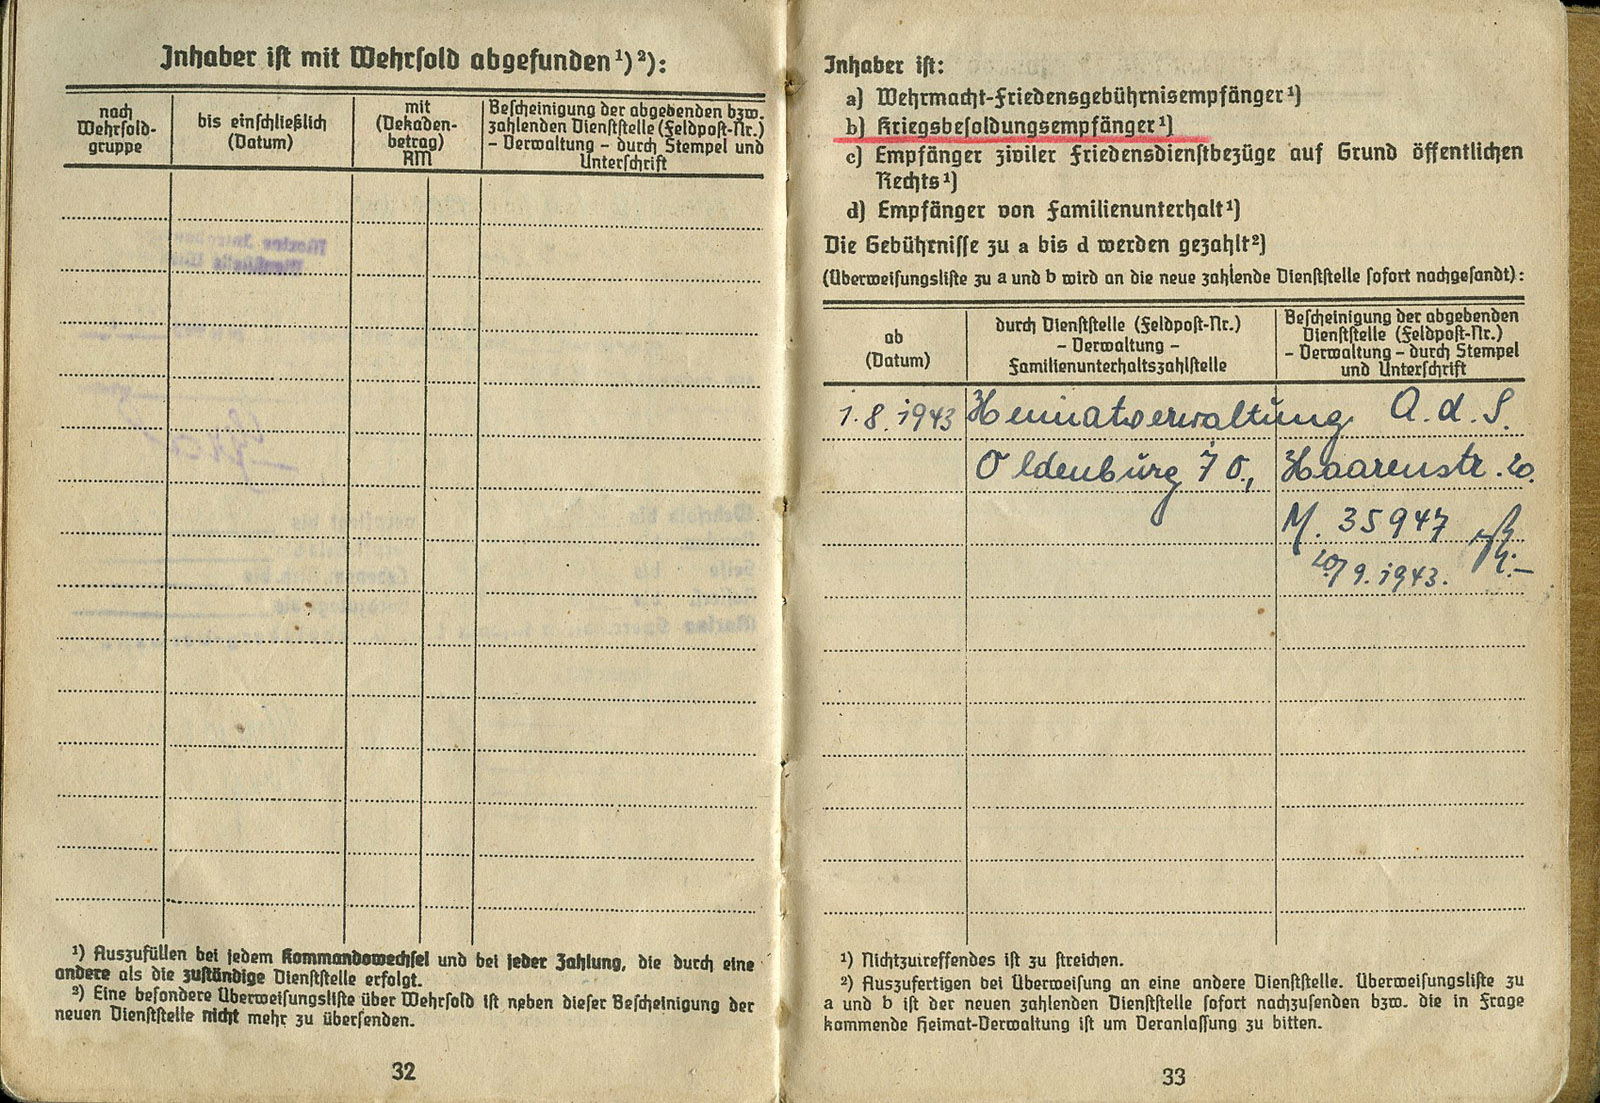 Inhaber ist mit Wehrsold abgefunden ¹) ²):
nach
Wehrsold-
gruppe
bis einschließlich
(Datum)
mit
(Dekaden-
betrag)
RM
Bescheinigung der abgebenden bzw.
zahlenden Dienststelle (Feldpost-Nr.)
- Verwaltung - durch Stempel und
Unterschrift
¹) Auszufüllen bei jedem Kommandowechsel und bei jeder Zahlung, die durch eine
andere als die zuständige Dienststelle erfolgt.
²) Eine besondere Überweisungsliste über Wehrsold ist neben dieser Bescheinigung der
neuen Dienststelle nicht mehr zu übersenden.
32
Inhaber ist:
a) Wehrmacht-Friedensgebührnisempfänger ¹)
b) Kriegsbesoldungsempfänger ¹)
c) Empfänger ziviler Friedensdienstbezüge auf Grund öffentlichen
Rechts ¹)
d) Empfänger von Familienunterhalt ¹)
Die Gebührnisse zu a bis d werden gezahlt ²)
(Überweisungsliste zu a und b wird an die neue zahlende Dienststelle sofort nachgesandt):
ab
(Datum)
durch Dienststelle (Feldpost-Nr.)
- Verwaltung -
Familienunterhaltszahlstelle
Bescheinigung der abgebenden
Dienststelle (Feldpost-Nr.)
- Verwaltung - durch Stempel
und Unterschrift
1.8.1943 Heimatverwaltung A.d.S.
Oldenburg i O., Haarenstr. 20.
M. 35947
20/9.1943.
¹) Nichtzutreffendes ist zu streichen.
²) Auszufertigen bei Überweisung an eine andere Dienststelle. Überweisungsliste zu
a und b ist der neuen zahlenden Dienststelle sofort nachzusenden bzw. die in Frage
kommende Heimat-Verwaltung ist um Veranlassung zu bitten.
33